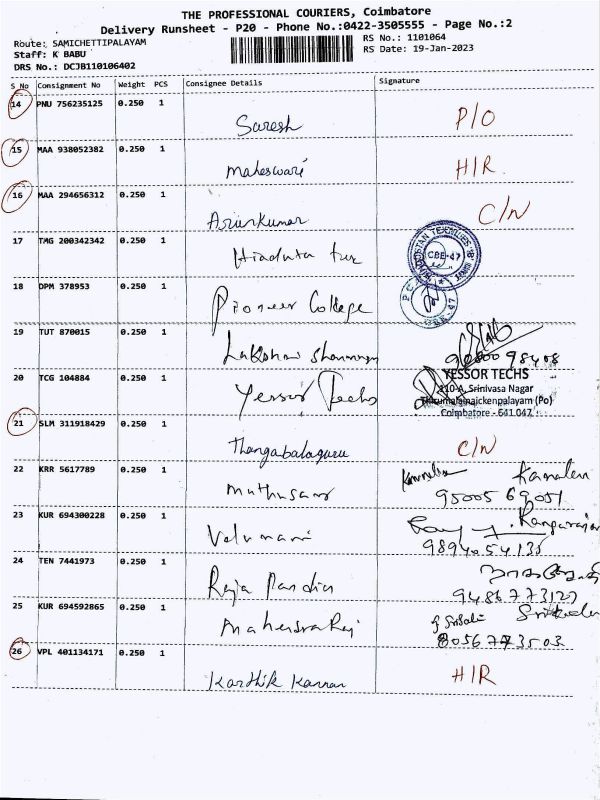 THE PROFESSIONAL COURIERS, Coimbatore
Delivery Runsheet - P20 - Phone No.:0422-3505555 - Page No.:2
Route: SAMICHETTIPALAYAM
RS No.: 1101064
Staff: K BABU
RS Date: 19-Jan-2023
DRS No.: DCJB110106402
S No Consignment No Weight PCS Consignee Details Signature
14 PNU 756235125 0.250 1
Saresh P/O
15 MAA 938052382 0.250 1
Maheswari H/R
16 MAA 294656312 0.250 1
Arunkumar C/N
17 TMG 200342342 0.250 1
CBE-47
18 DPM 378953 0.250 1
Pioneer College
19 TUT 870015 0.250 1
20 TCG 104884 0.250 1
YESSOR TECHS
Yessor Techs
110-A, Srinivasa Nagar
Thirumalainaickenpalayam (Po)
Coimbatore - 641 047
21 SLM 311918429 0.250 1
Thangabalaguru C/N
22 KRR 5617789 0.250 1
95005 69051
23 KUR 694300228 0.250 1
Velumani
24 TEN 7441973 0.250 1
Raja Pandian
25 KUR 694592865 0.250 1
Mahendra Raj
26 VPL 401134171 0.250 1
Karthik Kannan H/R